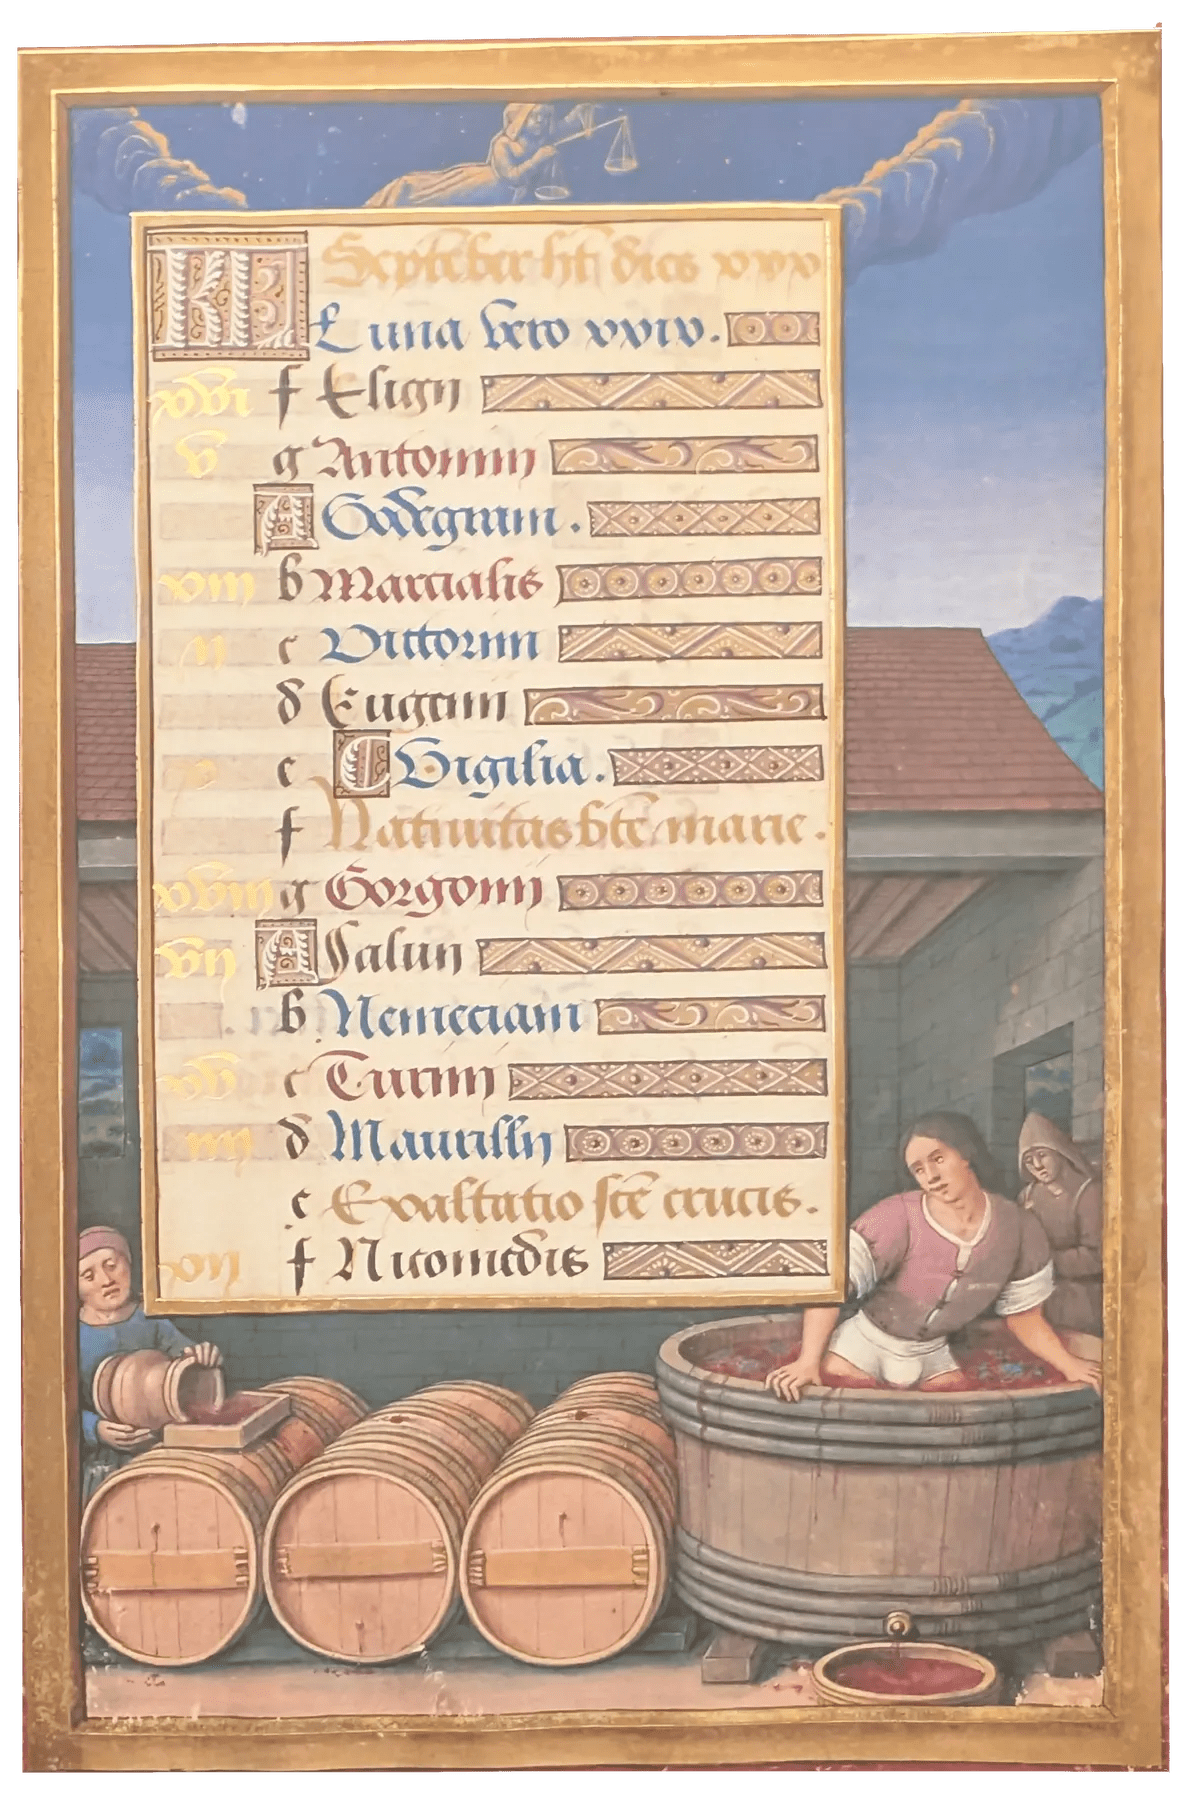 KL Septēber ht̄ dies xxx
Luna vero xxix.
xvi f Eligii
v g Antonini
A Godegrani.
xiii b Marcialis
ii c Victorini
d Eugenii
e Vigilia.
f Nativitas bt̄e marie.
xviii g Gorgonii
vii A Salvii
b Nemeciani
xv c Turini
iiii d Maurilii
e Exaltatio sc̄e crucis.
xii f Nicomedis